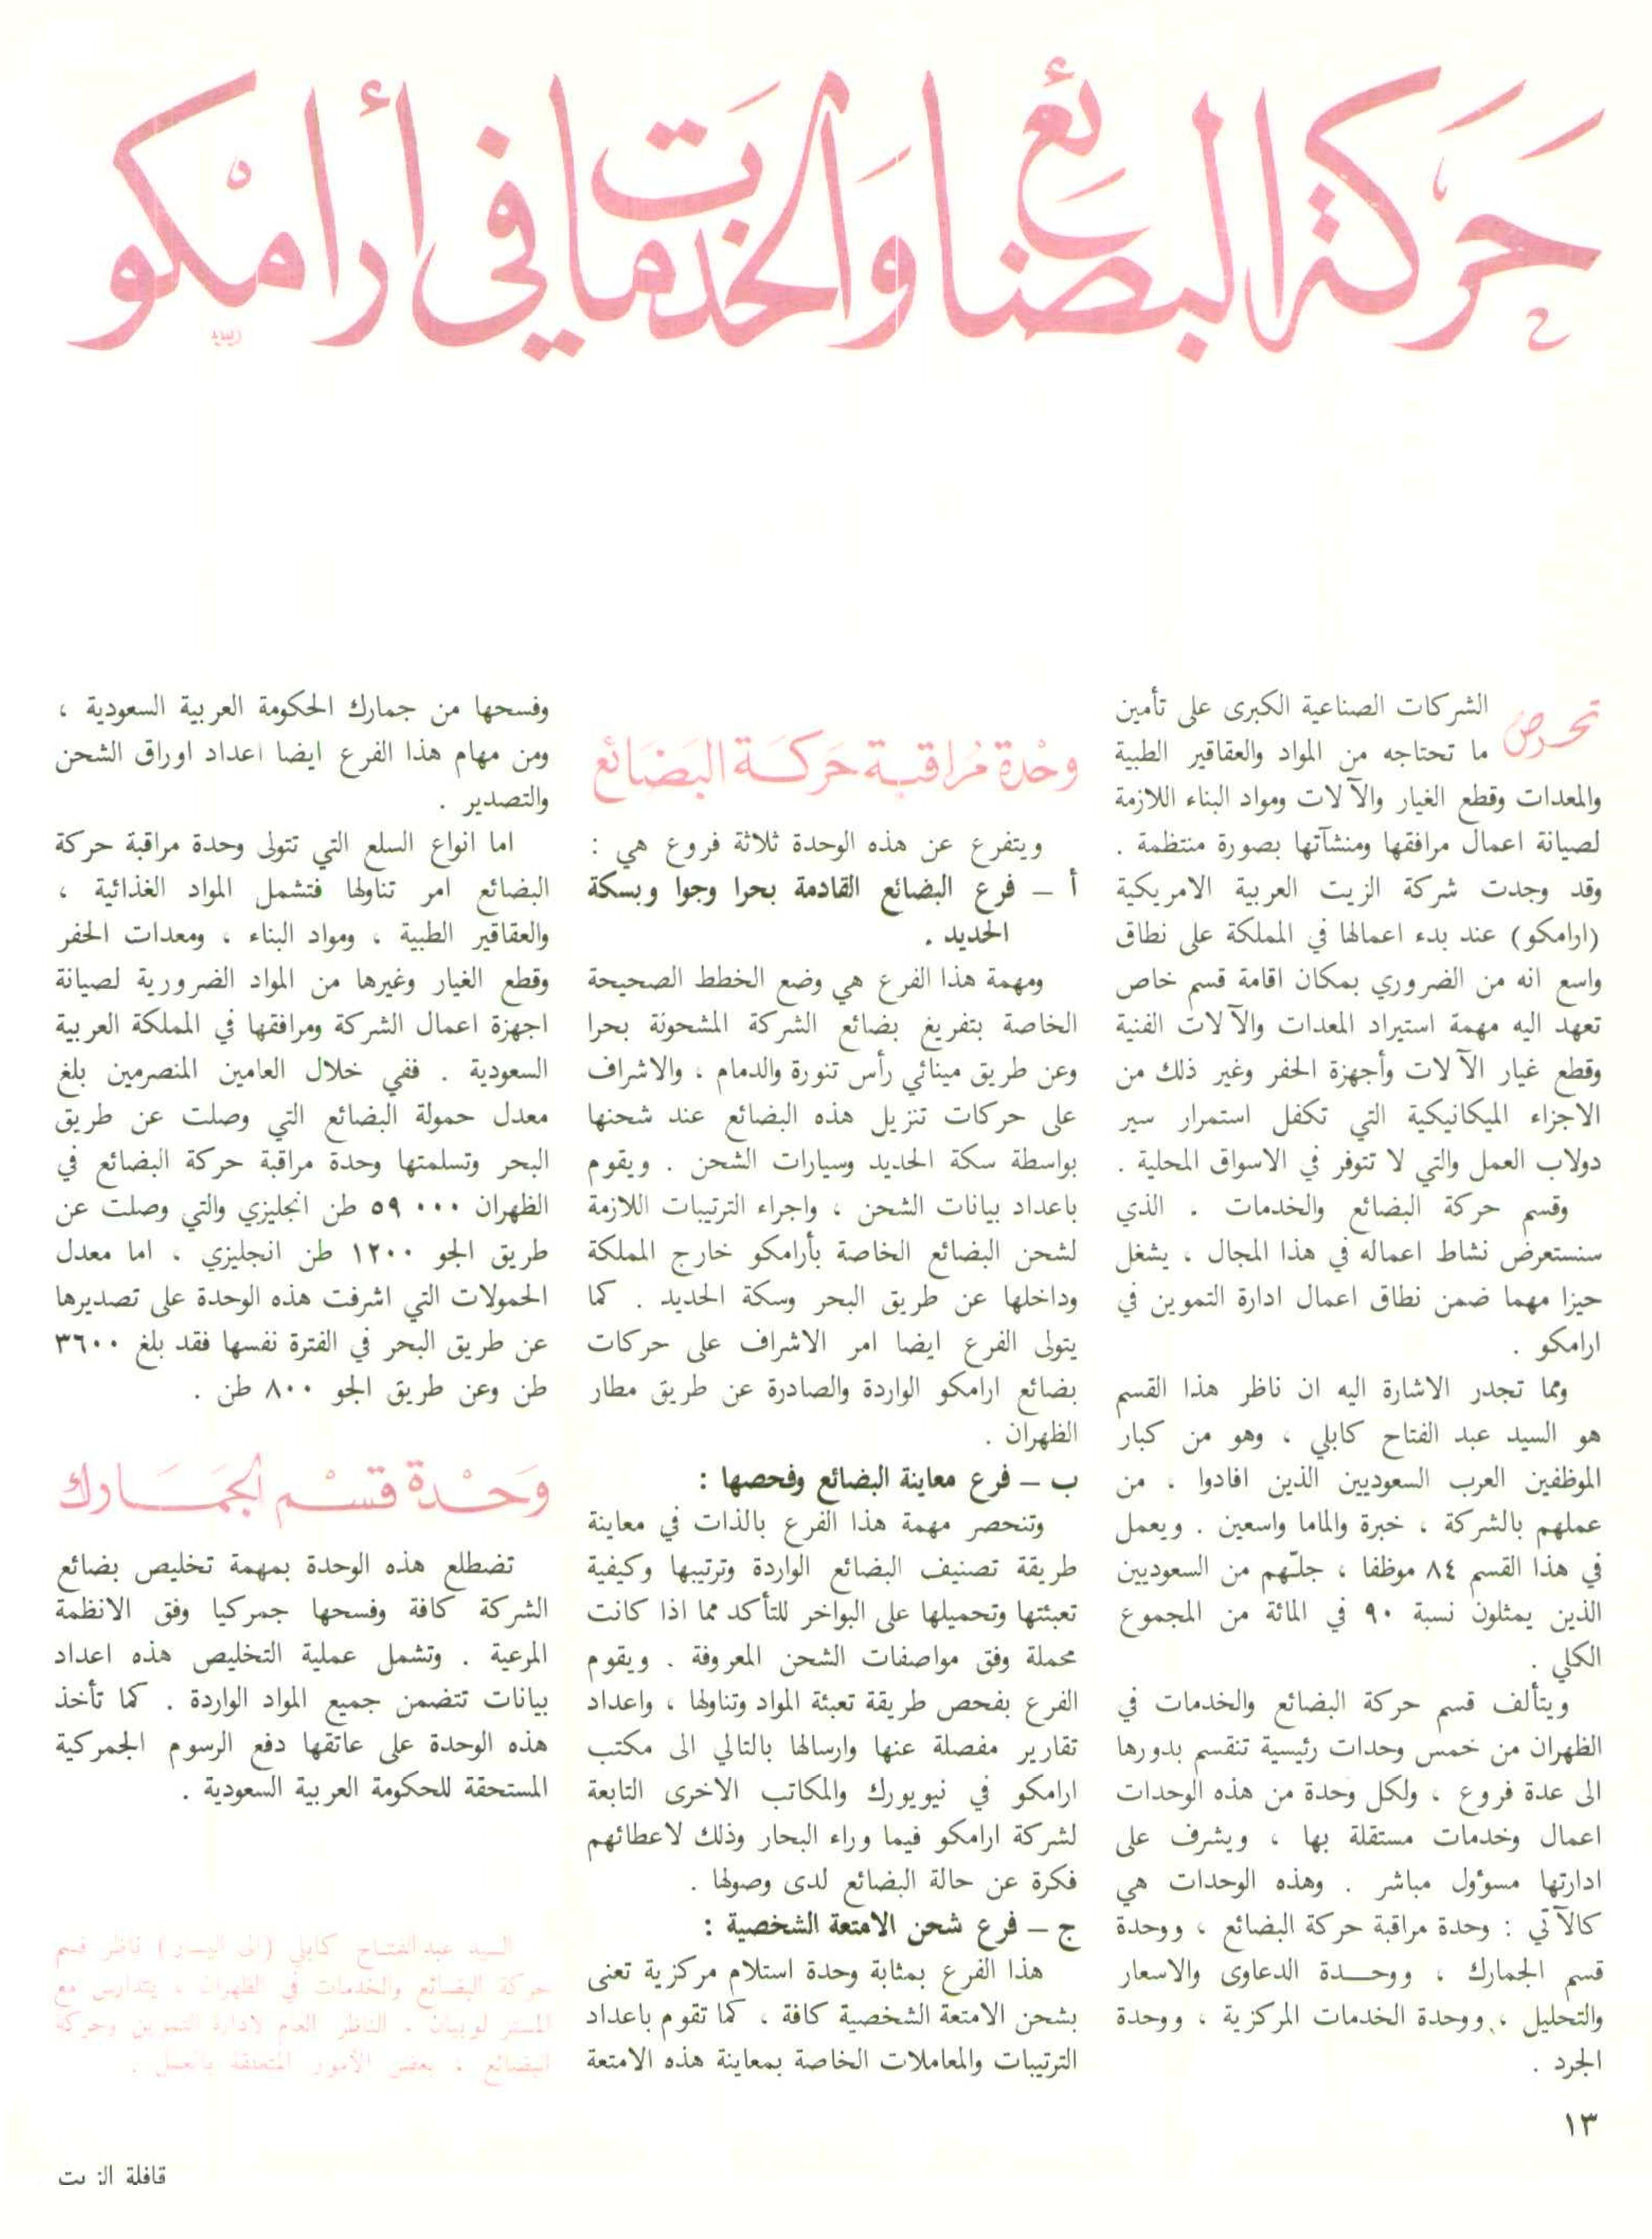 حركة البضائع والخدمات في أرامكو
تحرص الشركات الصناعية الكبرى على تأمين
ما تحتاجه من المواد والعقاقير الطبية
والمعدات وقطع الغيار والآلات ومواد البناء اللازمة
لصيانة اعمال مرافقها ومنشآتها بصورة منتظمة .
وقد وجدت شركة الزيت العربية الامريكية
(ارامكو) عند بدء اعمالها في المملكة على نطاق
واسع انه من الضروري بمكان اقامة قسم خاص
تعهد اليه مهمة استيراد المعدات والآلات الفنية
وقطع غيار الآلات وأجهزة الحفر وغير ذلك من
الاجزاء الميكانيكية التي تكفل استمرار سير
دولاب العمل والتي لا تتوفر في الاسواق المحلية .
وقسم حركة البضائع والخدمات ، الذي
سنستعرض نشاط اعماله في هذا المجال ، يشغل
حيزا مهما ضمن نطاق اعمال ادارة التموين في
ارامكو .
ومما تجدر الاشارة اليه ان ناظر هذا القسم
هو السيد عبد الفتاح كابلي ، وهو من كبار
الموظفين العرب السعوديين الذين افادوا ، من
عملهم بالشركة ، خبرة والماما واسعين . ويعمل
في هذا القسم ٨٤ موظفا ، جلّهم من السعوديين
الذين يمثلون نسبة ٩٠ في المائة من المجموع
الكلي .
ويتألف قسم حركة البضائع والخدمات في
الظهران من خمس وحدات رئيسية تنقسم بدورها
الى عدة فروع ، ولكل وحدة من هذه الوحدات
اعمال وخدمات مستقلة بها ، ويشرف على
ادارتها مسؤول مباشر . وهذه الوحدات هي
كالآتي : وحدة مراقبة حركة البضائع ، ووحدة
قسم الجمارك ، ووحدة الدعاوى والاسعار
والتحليل ، ووحدة الخدمات المركزية ، ووحدة
الجرد .
وحْدة مُراقبة حَركَة البَضَائع
ويتفرع عن هذه الوحدة ثلاثة فروع هي :
أ – فرع البضائع القادمة بحرا وجوا وبسكة
الحديد .
ومهمة هذا الفرع هي وضع الخطط الصحيحة
الخاصة بتفريغ بضائع الشركة المشحونة بحرا
وعن طريق مينائي رأس تنورة والدمام ، والاشراف
على حركات تنزيل هذه البضائع عند شحنها
بواسطة سكة الحديد وسيارات الشحن . ويقوم
باعداد بيانات الشحن ، واجراء الترتيبات اللازمة
لشحن البضائع الخاصة بأرامكو خارج المملكة
وداخلها عن طريق البحر وسكة الحديد . كما
يتولى الفرع ايضا امر الاشراف على حركات
بضائع ارامكو الواردة والصادرة عن طريق مطار
الظهران .
ب – فرع معاينة البضائع وفحصها :
وتنحصر مهمة هذا الفرع بالذات في معاينة
طريقة تصنيف البضائع الواردة وترتيبها وكيفية
تعبئتها وتحميلها على البواخر للتأكد مما اذا كانت
محملة وفق مواصفات الشحن المعروفة . ويقوم
الفرع بفحص طريقة تعبئة المواد وتناولها ، واعداد
تقارير مفصلة عنها وارسالها بالتالي الى مكتب
ارامكو في نيويورك والمكاتب الاخرى التابعة
لشركة ارامكو فيما وراء البحار وذلك لاعطائهم
فكرة عن حالة البضائع لدى وصولها .
ج – فرع شحن الامتعة الشخصية :
هذا الفرع بمثابة وحدة استلام مركزية تعنى
بشحن الامتعة الشخصية كافة ، كما تقوم باعداد
الترتيبات والمعاملات الخاصة بمعاينة هذه الامتعة
وفسحها من جمارك الحكومة العربية السعودية ،
ومن مهام هذا الفرع ايضا اعداد اوراق الشحن
والتصدير .
اما انواع السلع التي تتولى وحدة مراقبة حركة
البضائع امر تناولها فتشمل المواد الغذائية ،
والعقاقير الطبية ، ومواد البناء ، ومعدات الحفر
وقطع الغيار وغيرها من المواد الضرورية لصيانة
اجهزة اعمال الشركة ومرافقها في المملكة العربية
السعودية . ففي خلال العامين المنصرمين بلغ
معدل حمولة البضائع التي وصلت عن طريق
البحر وتسلمتها وحدة مراقبة حركة البضائع في
الظهران ٥٩٠٠٠ طن انجليزي والتي وصلت عن
طريق الجو ١٢٠٠ طن انجليزي ، اما معدل
الحمولات التي اشرفت هذه الوحدة على تصديرها
عن طريق البحر في الفترة نفسها فقد بلغ ٣٦٠٠
طن وعن طريق الجو ٨٠٠ طن .
وَحْدة قسْم الجمَارك
تضطلع هذه الوحدة بمهمة تخليص بضائع
الشركة كافة وفسحها جمركيا وفق الانظمة
المرعية . وتشمل عملية التخليص هذه اعداد
بيانات تتضمن جميع المواد الواردة . كما تأخذ
هذه الوحدة على عاتقها دفع الرسوم الجمركية
المستحقة للحكومة العربية السعودية .
السيد عبد الفتاح كابلي (الى اليسار) ناظر قسم
حركة البضائع والخدمات في الظهران ، يتدارس مع
المستر لوبيان ، الناظر العام لادارة التموين وحركة
البضائع ، بعض الأمور المتعلقة بالعمل .
١٣
قافلة الزيت